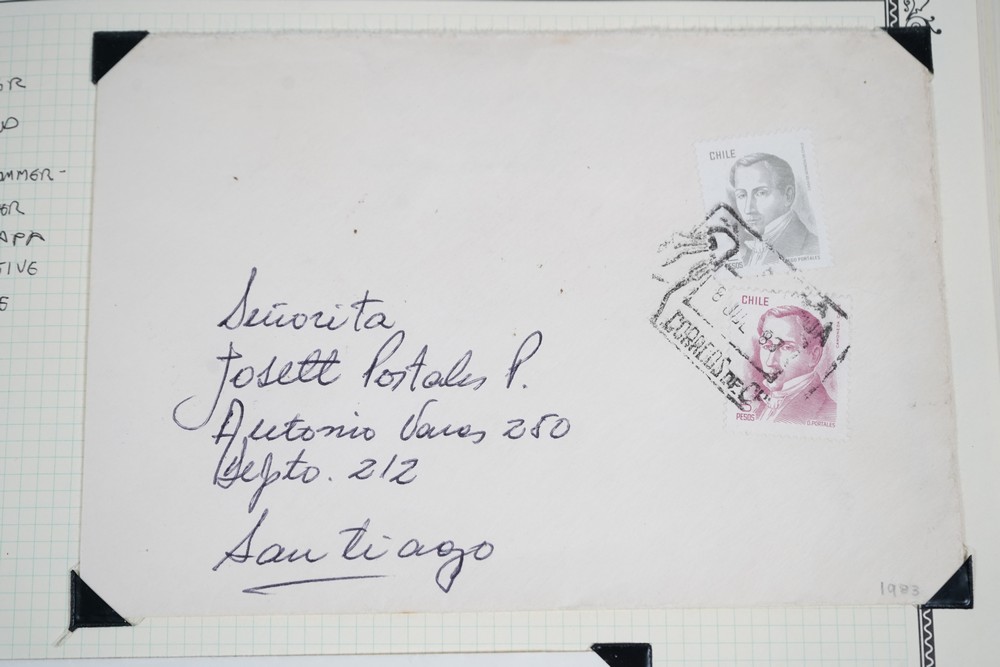 OR
MMER-
ER
TIVE
CHILE
PESOS
DIEGO PORTALES
8 JUL 83
CORREOS DE
CHILE
PESOS
D. PORTALES
Señorita
Josett Portales P.
Antonio Varas 250
Depto. 212
Santiago
1983